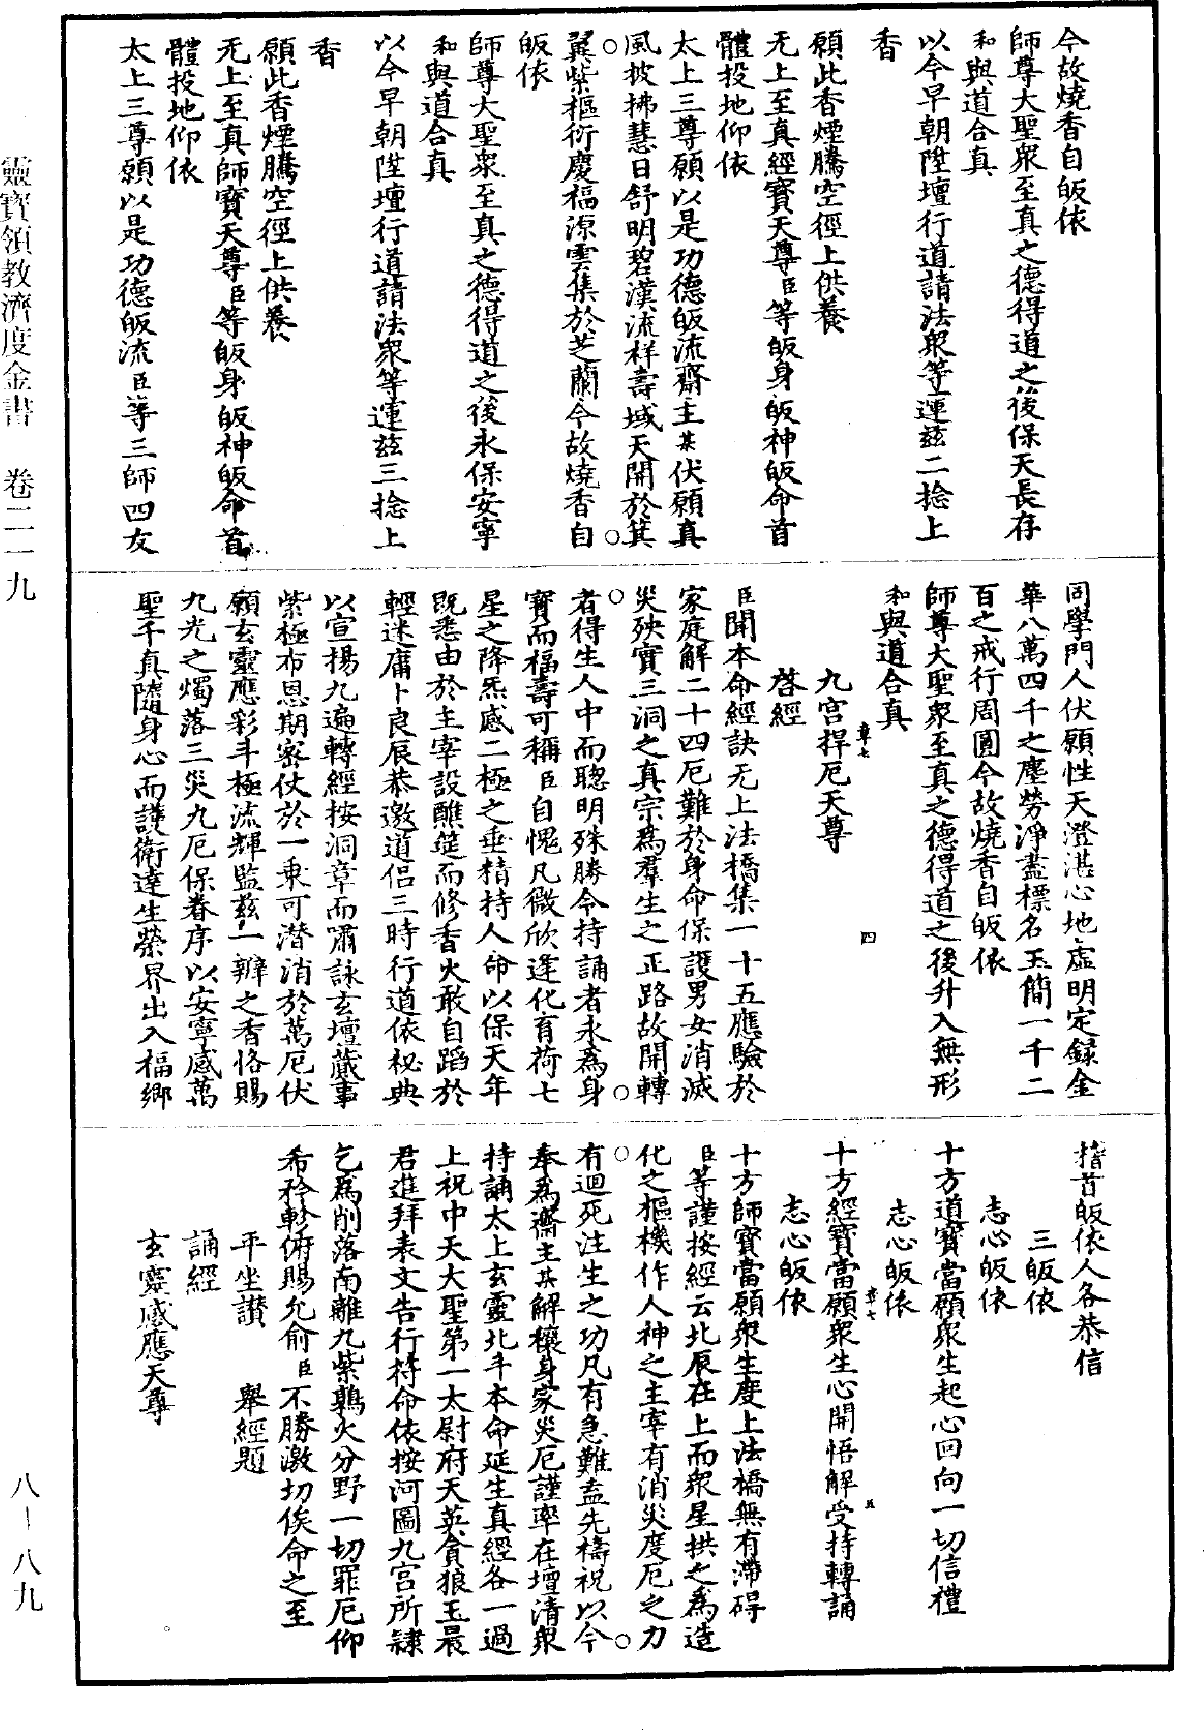 今故燒香自皈依
師尊大聖衆至真之德得道之後保天長存
和與道合真
以今早朝陞壇行道請法衆等運玆二捻上
香
願此香煙騰空徑上供養
无上至真經寶天尊臣等皈身皈神皈命首
體投地仰依
太上三尊願以是功德皈流齋主某伏願真
風披拂慧日舒明碧漢流祥壽域天開於箕
翼紫樞衍慶福源雲集於芝蘭今故燒香自
皈依
師尊大聖衆至真之德得道之後永保安寧
和與道合真
以今早朝陞壇行道請法衆等運玆三捻上
香
願此香煙騰空徑上供養
无上至真師寶天尊臣等皈身皈神皈命首
體投地仰依
太上三尊願以是功德皈流臣等三師四友
同學門人伏願性天澄湛心地虛明定錄金
華八萬四千之塵勞淨盡標名玉簡一千二
百之戒行周圓今故燒香自皈依
師尊大聖衆至真之德得道之後升入無形
和與道合真
章七 四
九宮捍厄天尊
啓經
臣聞本命經訣无上法橋集一十五應驗於
家庭解二十四厄難於身命保護男女消滅
災殃實三洞之真宗爲羣生之正路故開轉
者得生人中而聰明殊勝令持誦者永爲身
寶而福壽可稱臣自愧凡微欣逢化育荷七
星之降炁感二極之垂精持人命以保天年
既悉由於主宰設醮筵而修香火敢自蹈於
輕迷庸卜良辰恭邀道侶三時行道依祕典
以宣揚九遍轉經按洞章而嘯詠玄壇蕆事
紫極布恩期密仗於一乘可潜消於萬厄伏
願玄靈應彩斗極流輝監玆一瓣之香恪賜
九光之燭落三災九厄保眷序以安寧感萬
聖千真隨身心而護衛達生榮界出入福鄉
稽首皈依人各恭信
三皈依
志心皈依
十方道寶當願衆生起心回向一切信禮
志心皈依
章七 五
十方經寶當願衆生心開悟解受持轉誦
志心皈依
十方師寶當願衆生度上法橋無有滯碍
臣等謹按經云北辰在上而衆星拱之爲造
化之樞機作人神之主宰有消災度厄之力
有迴死注生之功凡有急難盍先禱祝以今
奉爲齋主某解禳身家災厄謹率在壇清衆
持誦太上玄靈北斗本命延生真經各一過
上祝中天大聖第一太尉府天英貪狼玉晨
君進拜表文告行符命依按河圖九宮所隸
乞爲削落南離九紫鶉火分野一切罪厄仰
希矜軫俯賜允俞臣不勝激切俟命之至
平坐讃 舉經題
誦經
玄靈感應天尊
靈寶領教濟度金書 卷二一九
八－八九